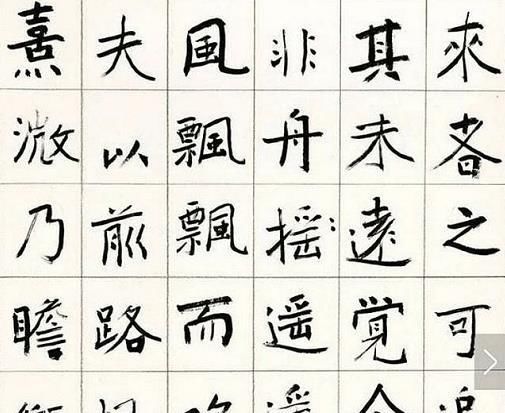 來者之可
其未遠覚
非舟摇遥
風飄飄而
夫以前路
熹微乃瞻